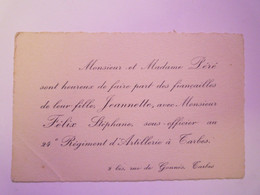 Monsieur et Madame Péré
sont heureux de faire part des fiançailles
de leur fille, Jeannette, avec Monsieur
Félix Stéphane, sous-officier au
24e Régiment d'Artillerie à Tarbes.
2 bis, rue du Tarbes